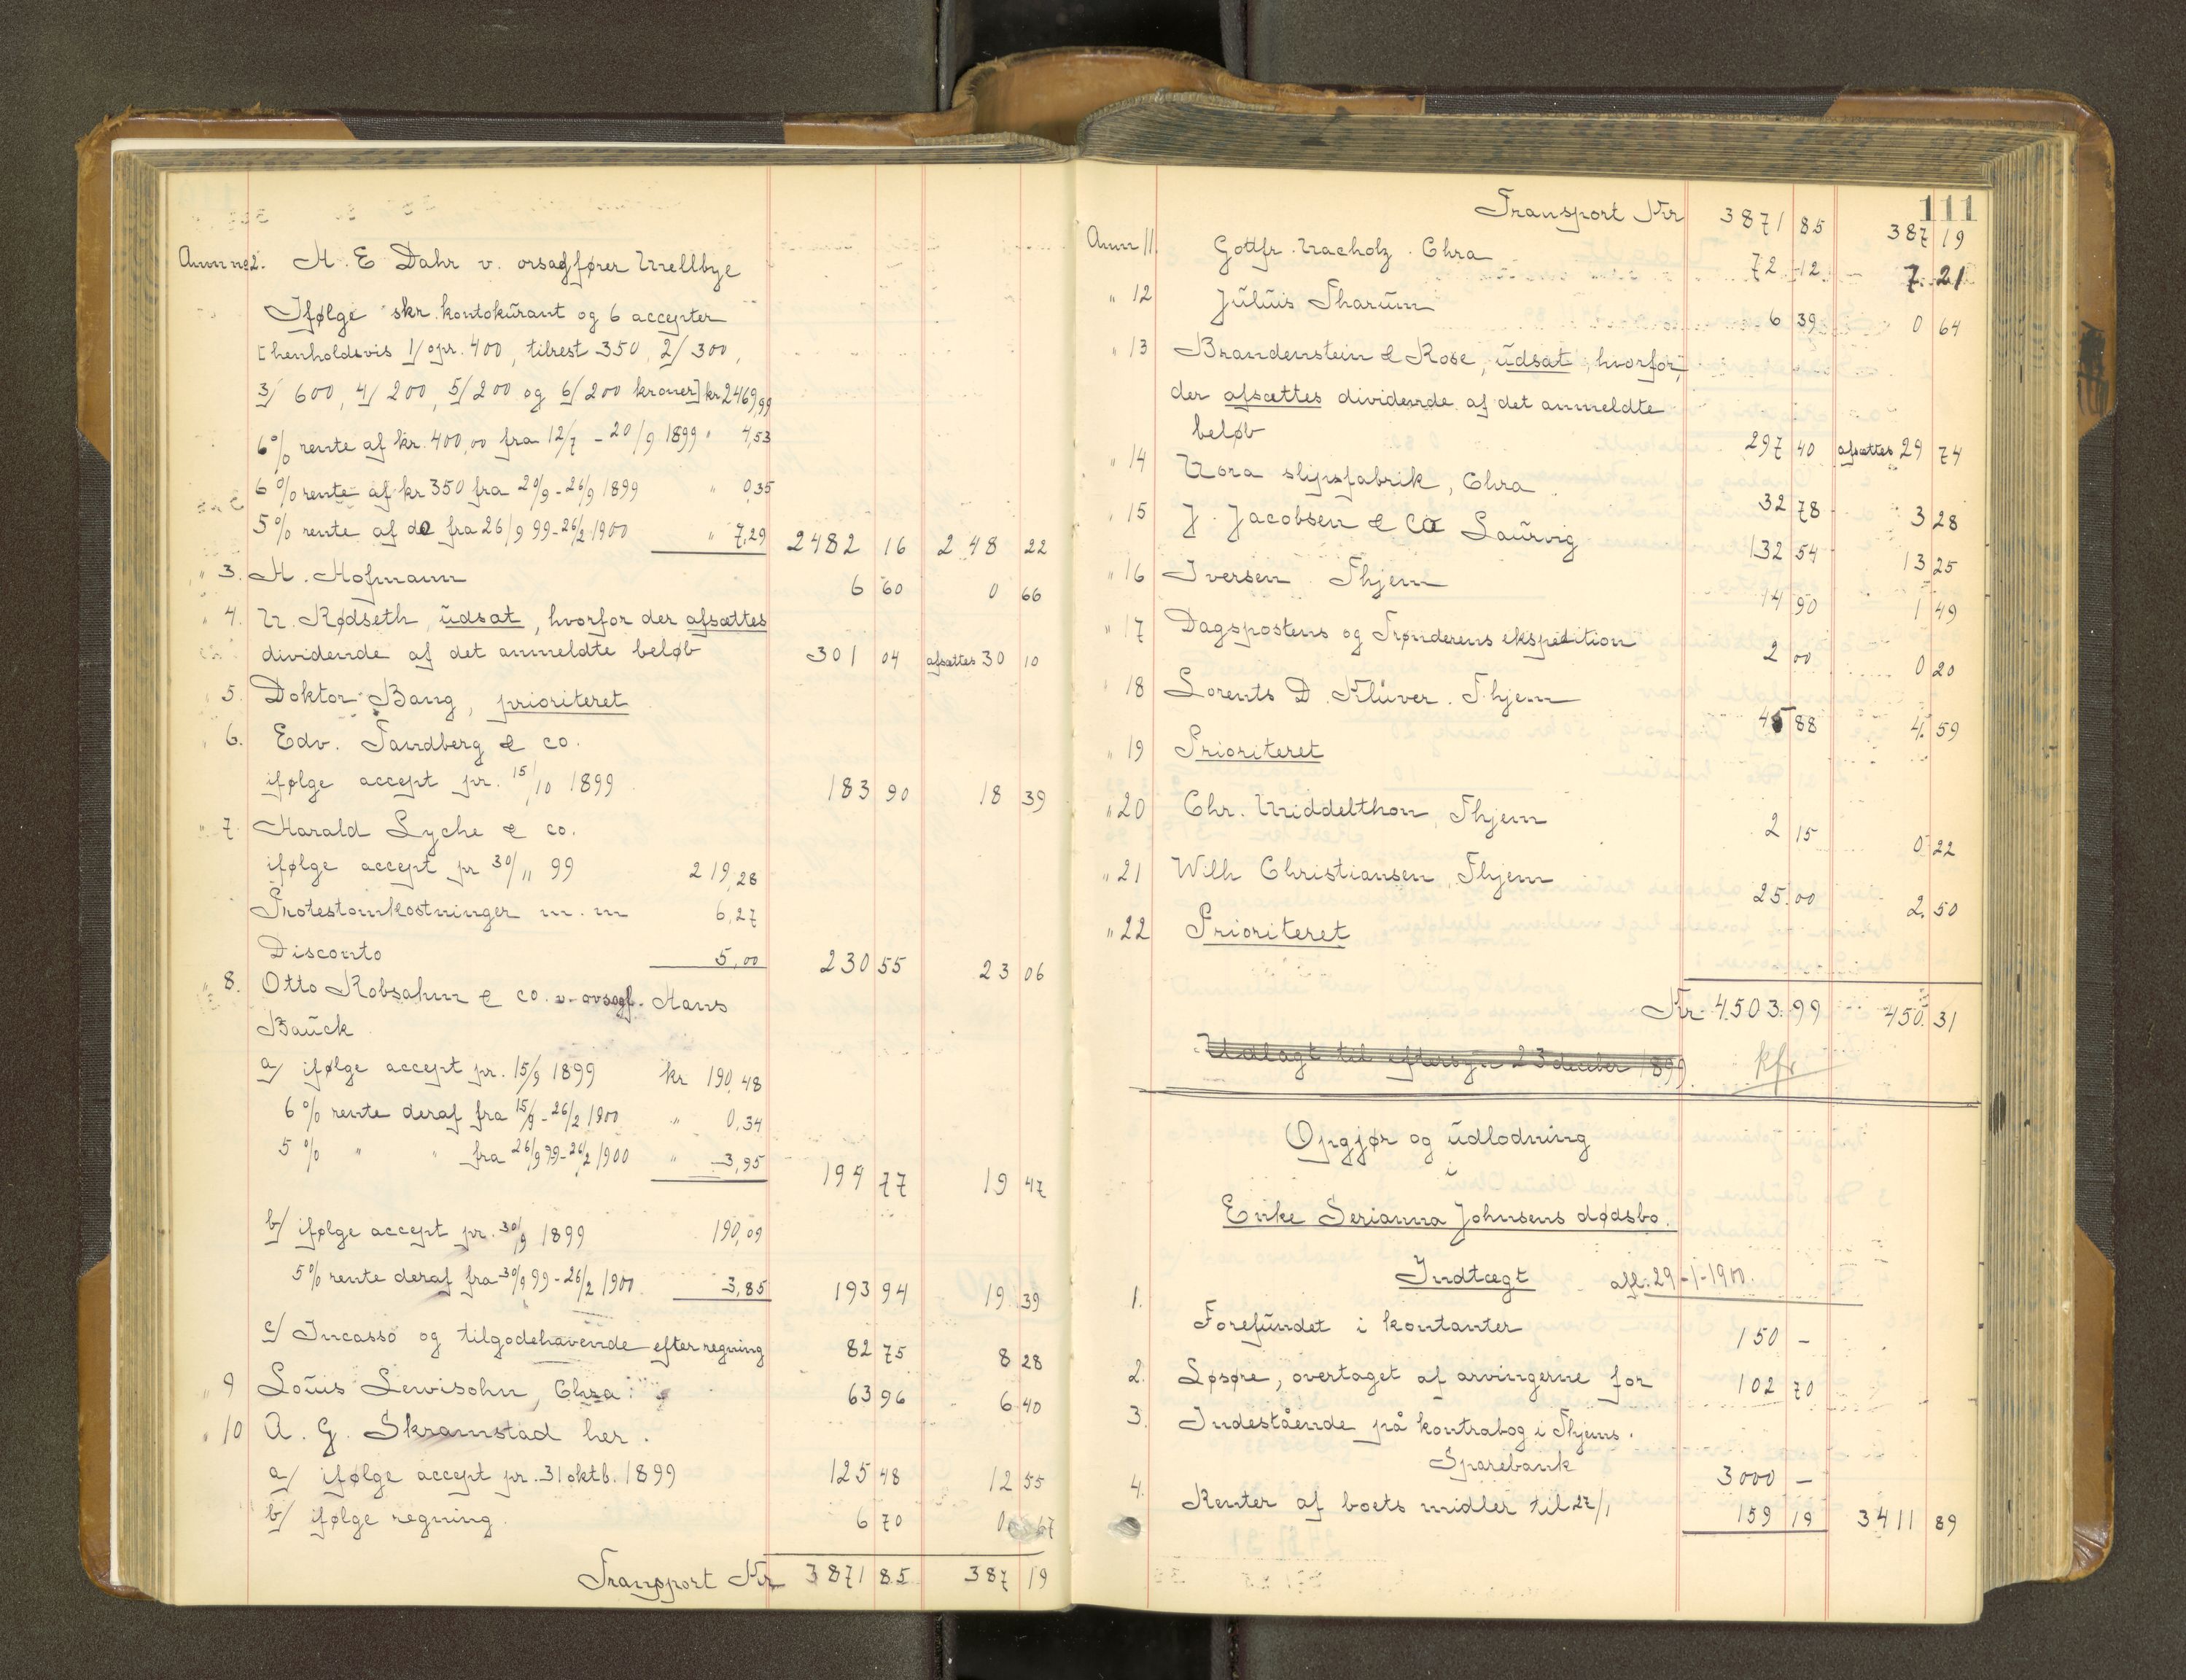 Anm no 2. H. E Dahr v. orsagfører Mellbye
Ifølge skr. kontokurant og 6 accepter
[henholdsvis 1/ opr. 400, tilrest 350, 2/ 300,
3/ 600, 4/ 200, 5/ 200 og 6/ 200 kroner] kr 2469,99
6 % rente af kr. 400,00 fra 12/7 - 20/9 1899 " 4,53
6 % rente af kr 350 fra 20/9 - 26/9 1899 " 0,35
5 % rente af do fra 26/9 99 - 26/2 1900 " 7,29 2482 16 248 22
" 3. H. Hofmann 6 60 0 66
" 4. N. Rødseth, udsat, hvorfor der afsættes
dividende af det anmeldte beløb 301 04 afsættes 30 10
" 5. Doktor Bang, prioriteret
" 6. Edv. Sandberg & co.
ifølge accept pr. 15/10 1899 183 90 18 39
" 7. Harald Lyche & co.
ifølge accept pr 30/11 99 219,28
Protestomkostninger m. m 6,27
Disconto 5,00 230 55 23 06
" 8. Otto Robsahm & co. v. orsagf. Hans
Bauck
a/ ifølge accept pr. 15/9 1899 kr 190,48
6 % rente deraf fra 15/9 - 26/2 1900 " 0,34
5 % " " fra 26/9 99 - 26/2 1900 " 3,95 194 77 19 47
b/ ifølge accept pr. 30/9 1899 190,09
5 % rente deraf fra 30/9 99 - 26/2 1900 3,85 193 94 19 39
c/ Incasso og tilgodehavende efter regning 82 75 8 28
" 9 Louis Lewisohn, Chra: 63 96 6 40
" 10 A. G. Skramstad her.
a/ ifølge accept pr. 31 oktb. 1899 125 48 12 55
b/ ifølge regning. 6 70 0 67
Transport Kr 3871 85 387 19
111
Transport Kr 3871 85 387 19
Anm 11. Gottfr. Nacholz. Chra 72 12 7 21
" 12 Julius Tharum 6 39 0 64
" 13 Brandenstein & Rose, udsat, hvorfor
der afsættes dividende af det anmeldte
beløb 297 40 afsættes 29 74
" 14 Nora slipsfabrik, Chra 32 78 3 28
" 15 J. Jacobsen & Co Laurvig 132 54 13 25
" 16 Iversen Thjem 14 90 1 49
" 17 Dagspostens og Trønderens ekspedition 2 00 0 20
" 18 Lorents D. Klüver. Thjem 45 88 4 59
" 19 Prioriteret
" 20 Chr. Middelthon, Thjem 2 15 0 22
" 21 Wilh Christiansen, Thjem 25 00 2 50
" 22 Prioriteret
Kr 4503 99 450 31
Udlagt til eftersyn 23 december 1899. kfr
Opgjør og udlodning
i
Enke Serianna Johnsens dødsbo.
Indtægt afl: 29-1-1900.
1. Forefundet i kontanter 150 -
2. Løsøre, overtaget af arvingerne for 102 70
3. Indestående på kontrabog i Thjems.
Sparebank 3000 -
4. Renter af boets midler til 27/1 159 19 3411 89